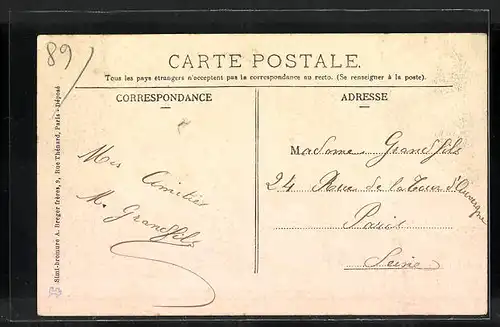 89
CARTE POSTALE.
Tous les pays étrangers n'acceptent pas la correspondance au recto. (Se renseigner à la poste).
CORRESPONDANCE
ADRESSE
Mes Amitiés
M. Grandfils
Madame Grandfils
24 Rue de la Tour d'Auvergne
Paris
Seine
Simi-bromure A. Breger frères, 9, Rue Thénard, Paris - Déposé